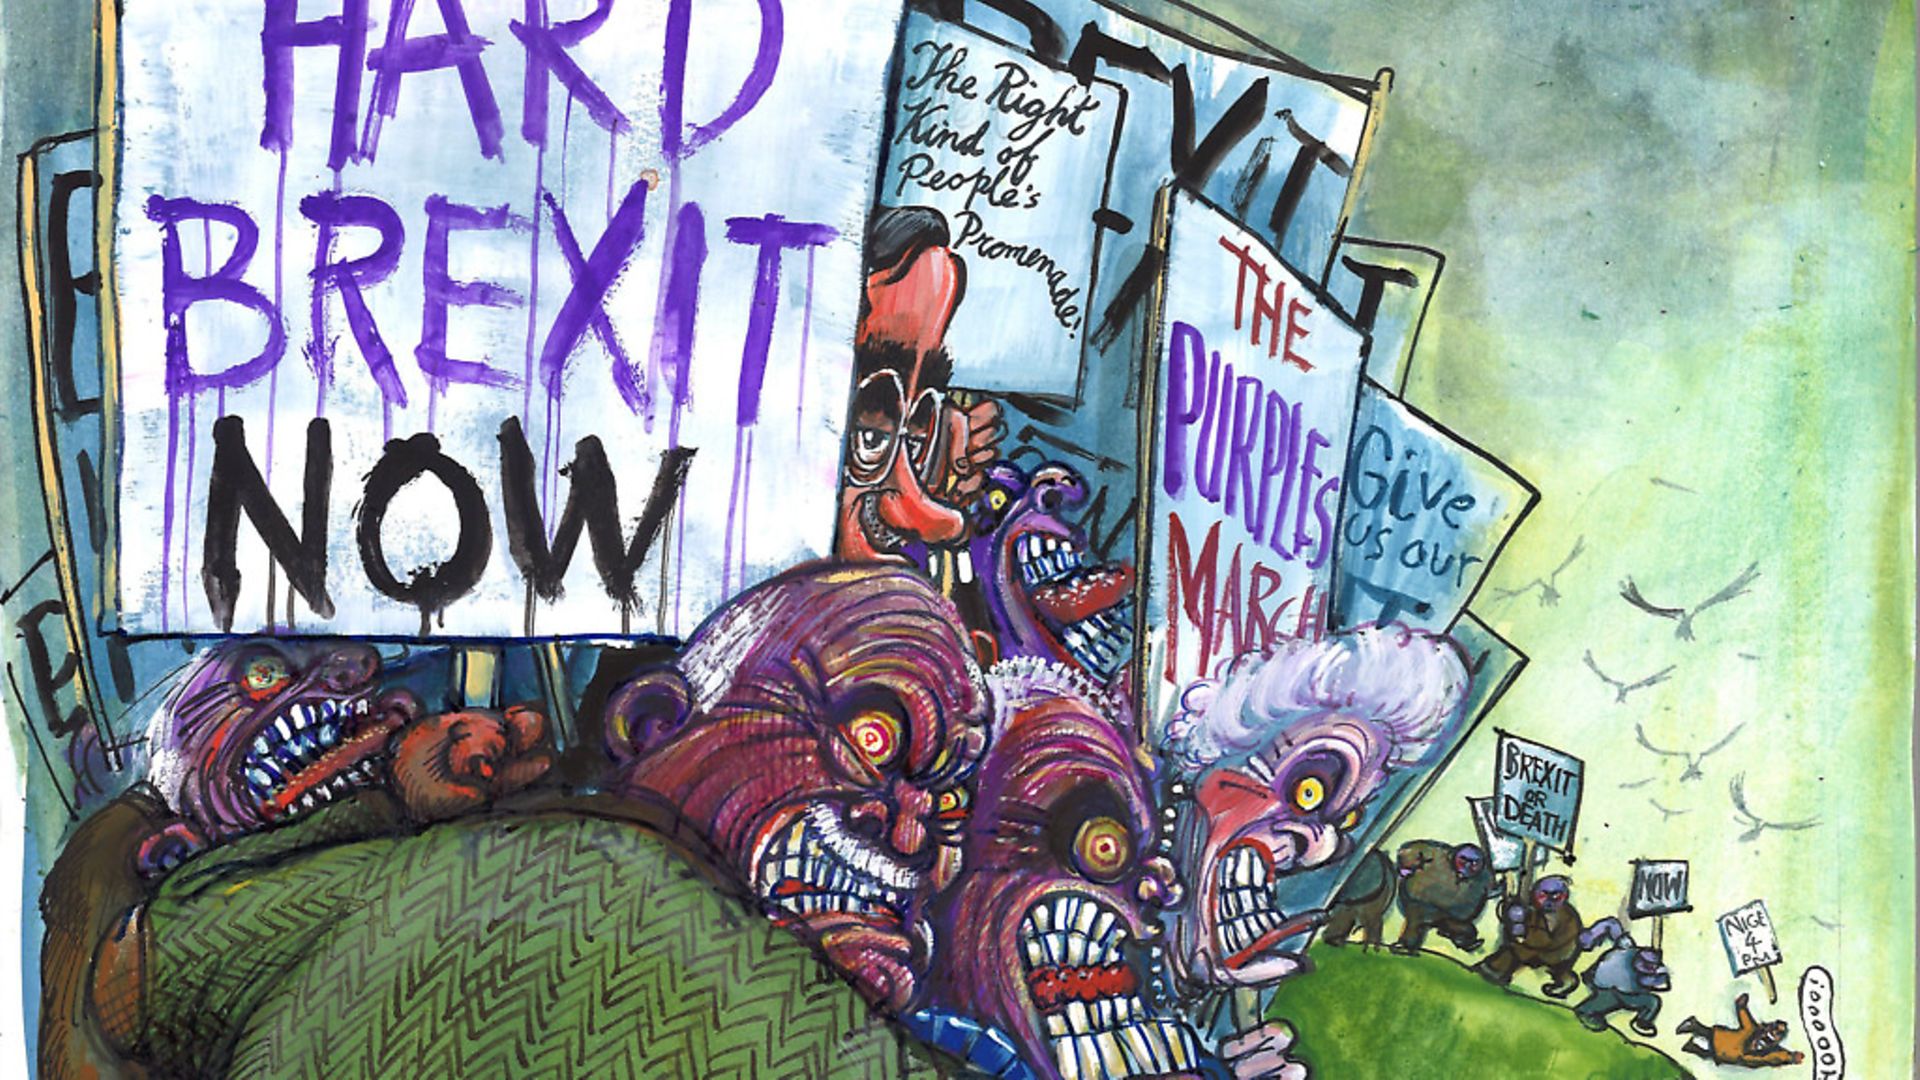 HARD
BREXIT
NOW
The Right
Kind of
People's
Promenade!
THE
PURPLES
MARCH
Give
us our
BREXIT
OR
DEATH
NOW
NIGE
4
PM